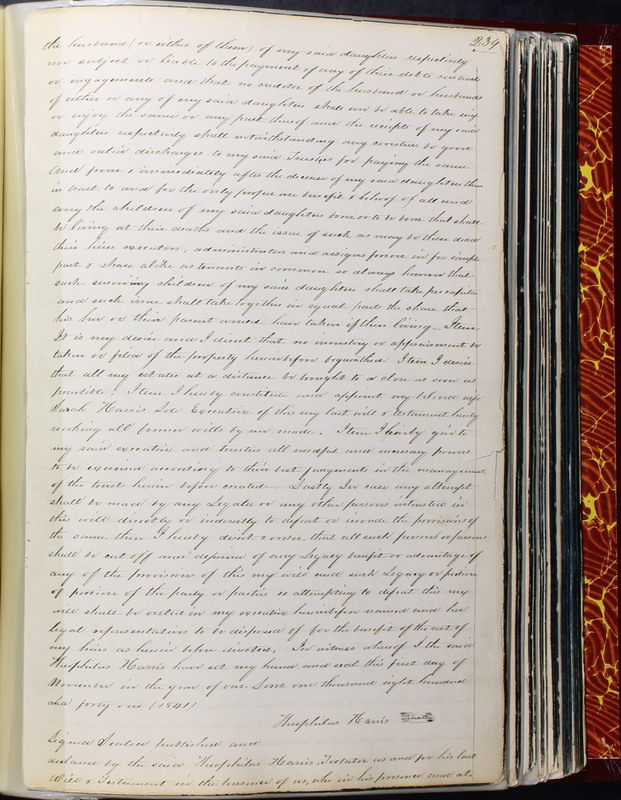 239
the husband (or either of them) of my said daughters respectively
nor subject or liable to the payment of any of their debts contracts
or engagements and that no creditor of the husband or husbands
of either or any of my said daughters shall ever be able to take
or enjoy the same or any part thereof and the receipts of my said
daughters respectively shall notwithstanding any coverture be good
and valid discharges to my said Trustees for paying the same
And from & immediately after the decease of my said daughters then
in trust to and for the only proper use benefit & behoof of all and
every the children of my said daughters born or to be born that shall
be living at their deaths and the issue of such as may be then dead
their heirs executors, administrators and assigns forever in fee simple
part & share alike as tenants in common so always however that
such surviving children of my said daughters shall take per capita
and such issue shall take together in equal parts the share that
his her or their parent would have taken if then living - Item
It is my desire and I direct that no inventory or appraisement be
taken or filed of the property hereinbefore bequeathed. Item I desire
that all my estates at a distance be brought to a close as soon as
possible. Item I hereby constitute and appoint my beloved wife
Sarah Harris Sole Executrix of this my last will & testament hereby
revoking all former wills by me made. Item I hereby give to
my said executrix and trustees all needful and necessary powers
to be exercised according to their best judgements in the management
of the trust herein before created. Lastly In case any attempt
shall be made by any Legatee or any other person interested in
this will directly or indirectly to defeat or evade the provisions of
the same then I hereby direct & order that all such person or persons
shall be cut off and deprived of any Legacy benefit or advantage of
any of the provisions of this my will and such Legacy or portion
of portion of the party or parties so attempting to defeat this my
will shall be vested in my executrix hereinbefore named and her
legal representatives to be disposed of for the benefit of the rest of
my heirs as herein before directed, In witness whereof I the said
Theophilus Harris have set my hand and seal this first day of
November in the year of our Lord one thousand eight hundred
and forty one (1841)
Theophilus Harris
Signed Sealed published and
declared by the said Theophilus Harris Testator as and for his last
Will & Testament in the presence of us, who in his presence and at